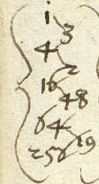 1
3
4
12
16
48
64
192
256